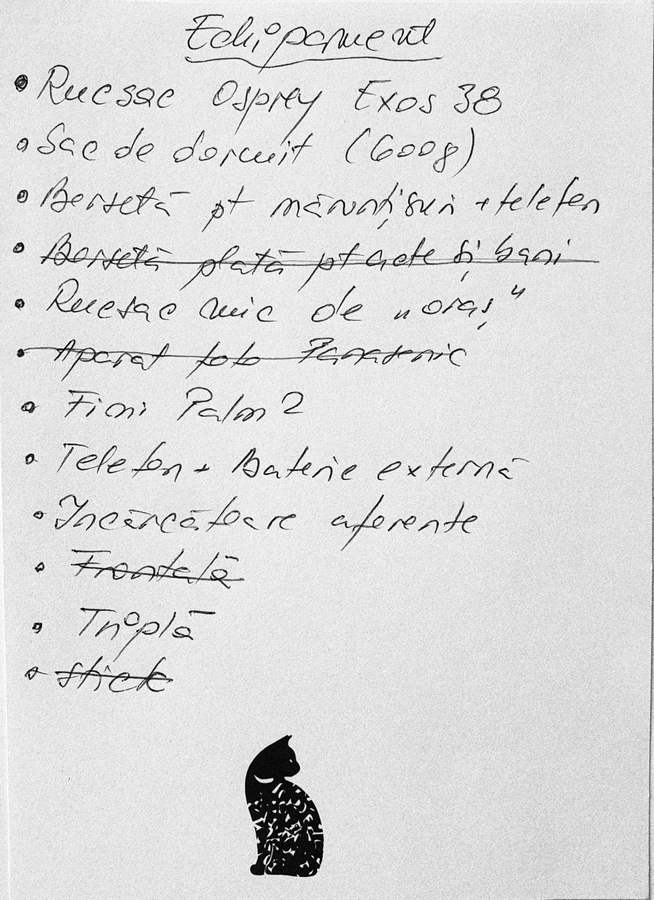 Echipament
• Rucsac Osprey Exos 38
• Sac de dormit (600g)
• Borsetă pt mărunțișuri + telefon
• Borsetă plată pt acte și bani
• Rucsac mic de „oraș”
• Aparat foto Panasonic
• Fimi Palm 2
• Telefon + Baterie externă
• Încărcătoare aferente
• Frontală
• Triplă
• Stick